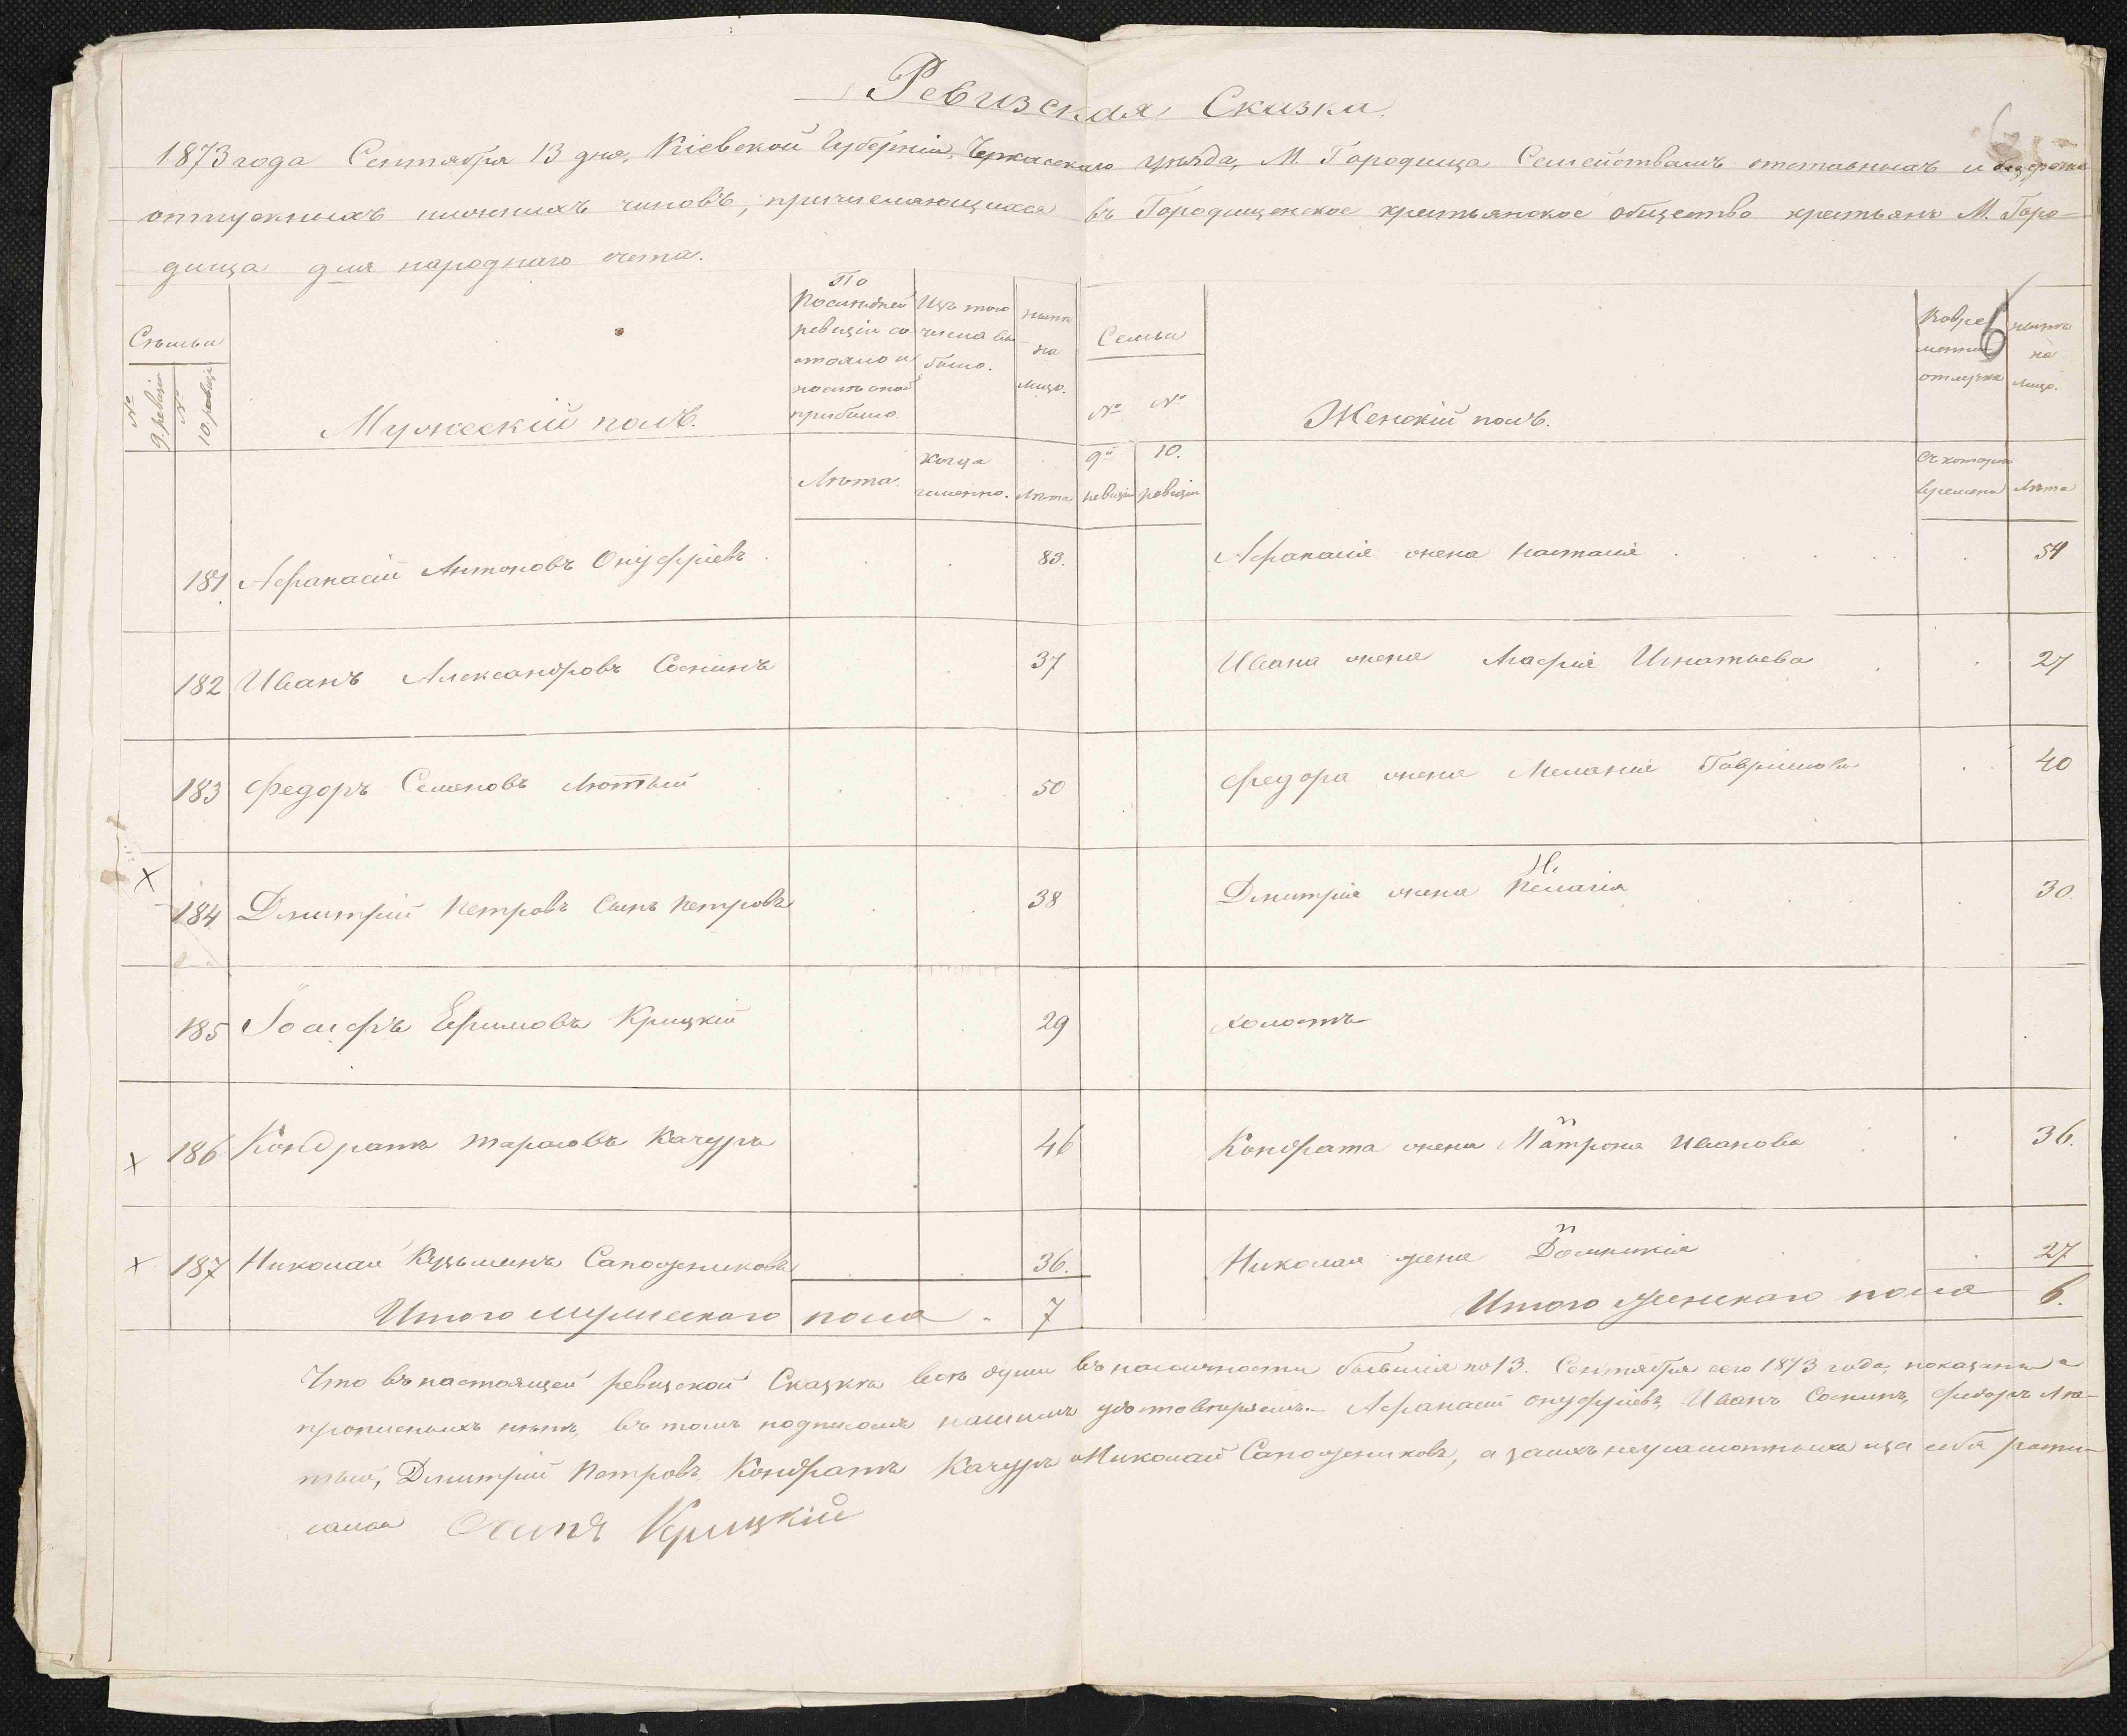 Ревизская Сказка.
1873 года Сентября 13 дня, Кіевской Губерніи, Черкасскаго уѣзда, М. Городища Семействамъ отставныхъ и безсрочно
отпускныхъ нижнихъ чиновъ, причисляющихся въ Городищенское крестьянское общество крестьянъ М. Горо-
дища для народнаго счета.
Сѣмьи
№ 9. ревизіи
№ 10. ревизіи
Мужескій полъ.
По послѣдней ревизіи состояло и послѣ оной прибыло.
Изъ того числа выбыло.
нынѣ на лицо.
Семьи
№ №
Женскій полъ.
Во временной отлучкѣ
нынѣ на лицо.
Лѣта.
Когда именно.
Лѣта
9й ревизіи
10. ревизіи
Съ котораго времени
Лѣта
181 Афанасій Антоновъ Онуфріевъ 83. Афанасія жена Настасія 54
182 Иванъ Александровъ Соснинъ 37 Ивана жена Агафія Игнатьева 27
183 Федоръ Семеновъ Лютый 50 Федора жена Меланія Гаврилова 40
Н.
х 184 Дмитрій Петровъ Сынъ Петровъ 38 Дмитрія жена Пелагія 30
185 Іосифъ Ефимовъ Крицкій 29 холостъ
х 186 Кондратъ Тарасовъ Качуръ 46 Кондрата жена Матрона Иванова 36.
х 187 Николай Кузьминъ Сапожниковъ 36. Николая жена Домникія 27
Итого мужескаго пола 7 Итого женскаго пола 6.
Что въ настоящей ревизской Сказкѣ всѣ души въ наличности бывшія по 13. Сентября сего 1873 года, показаны а
прописныхъ нѣтъ, въ томъ подписомъ нашимъ удостовѣряемъ.– Афанасій Онуфріевъ, Иванъ Соснинъ, Федоръ Лю-
тый, Дмитрій Петровъ, Кондратъ Качуръ и Николай Сапожниковъ, а за ихъ неграмотныхъ и за себя роспи-
сался Осипъ Крицкій
6